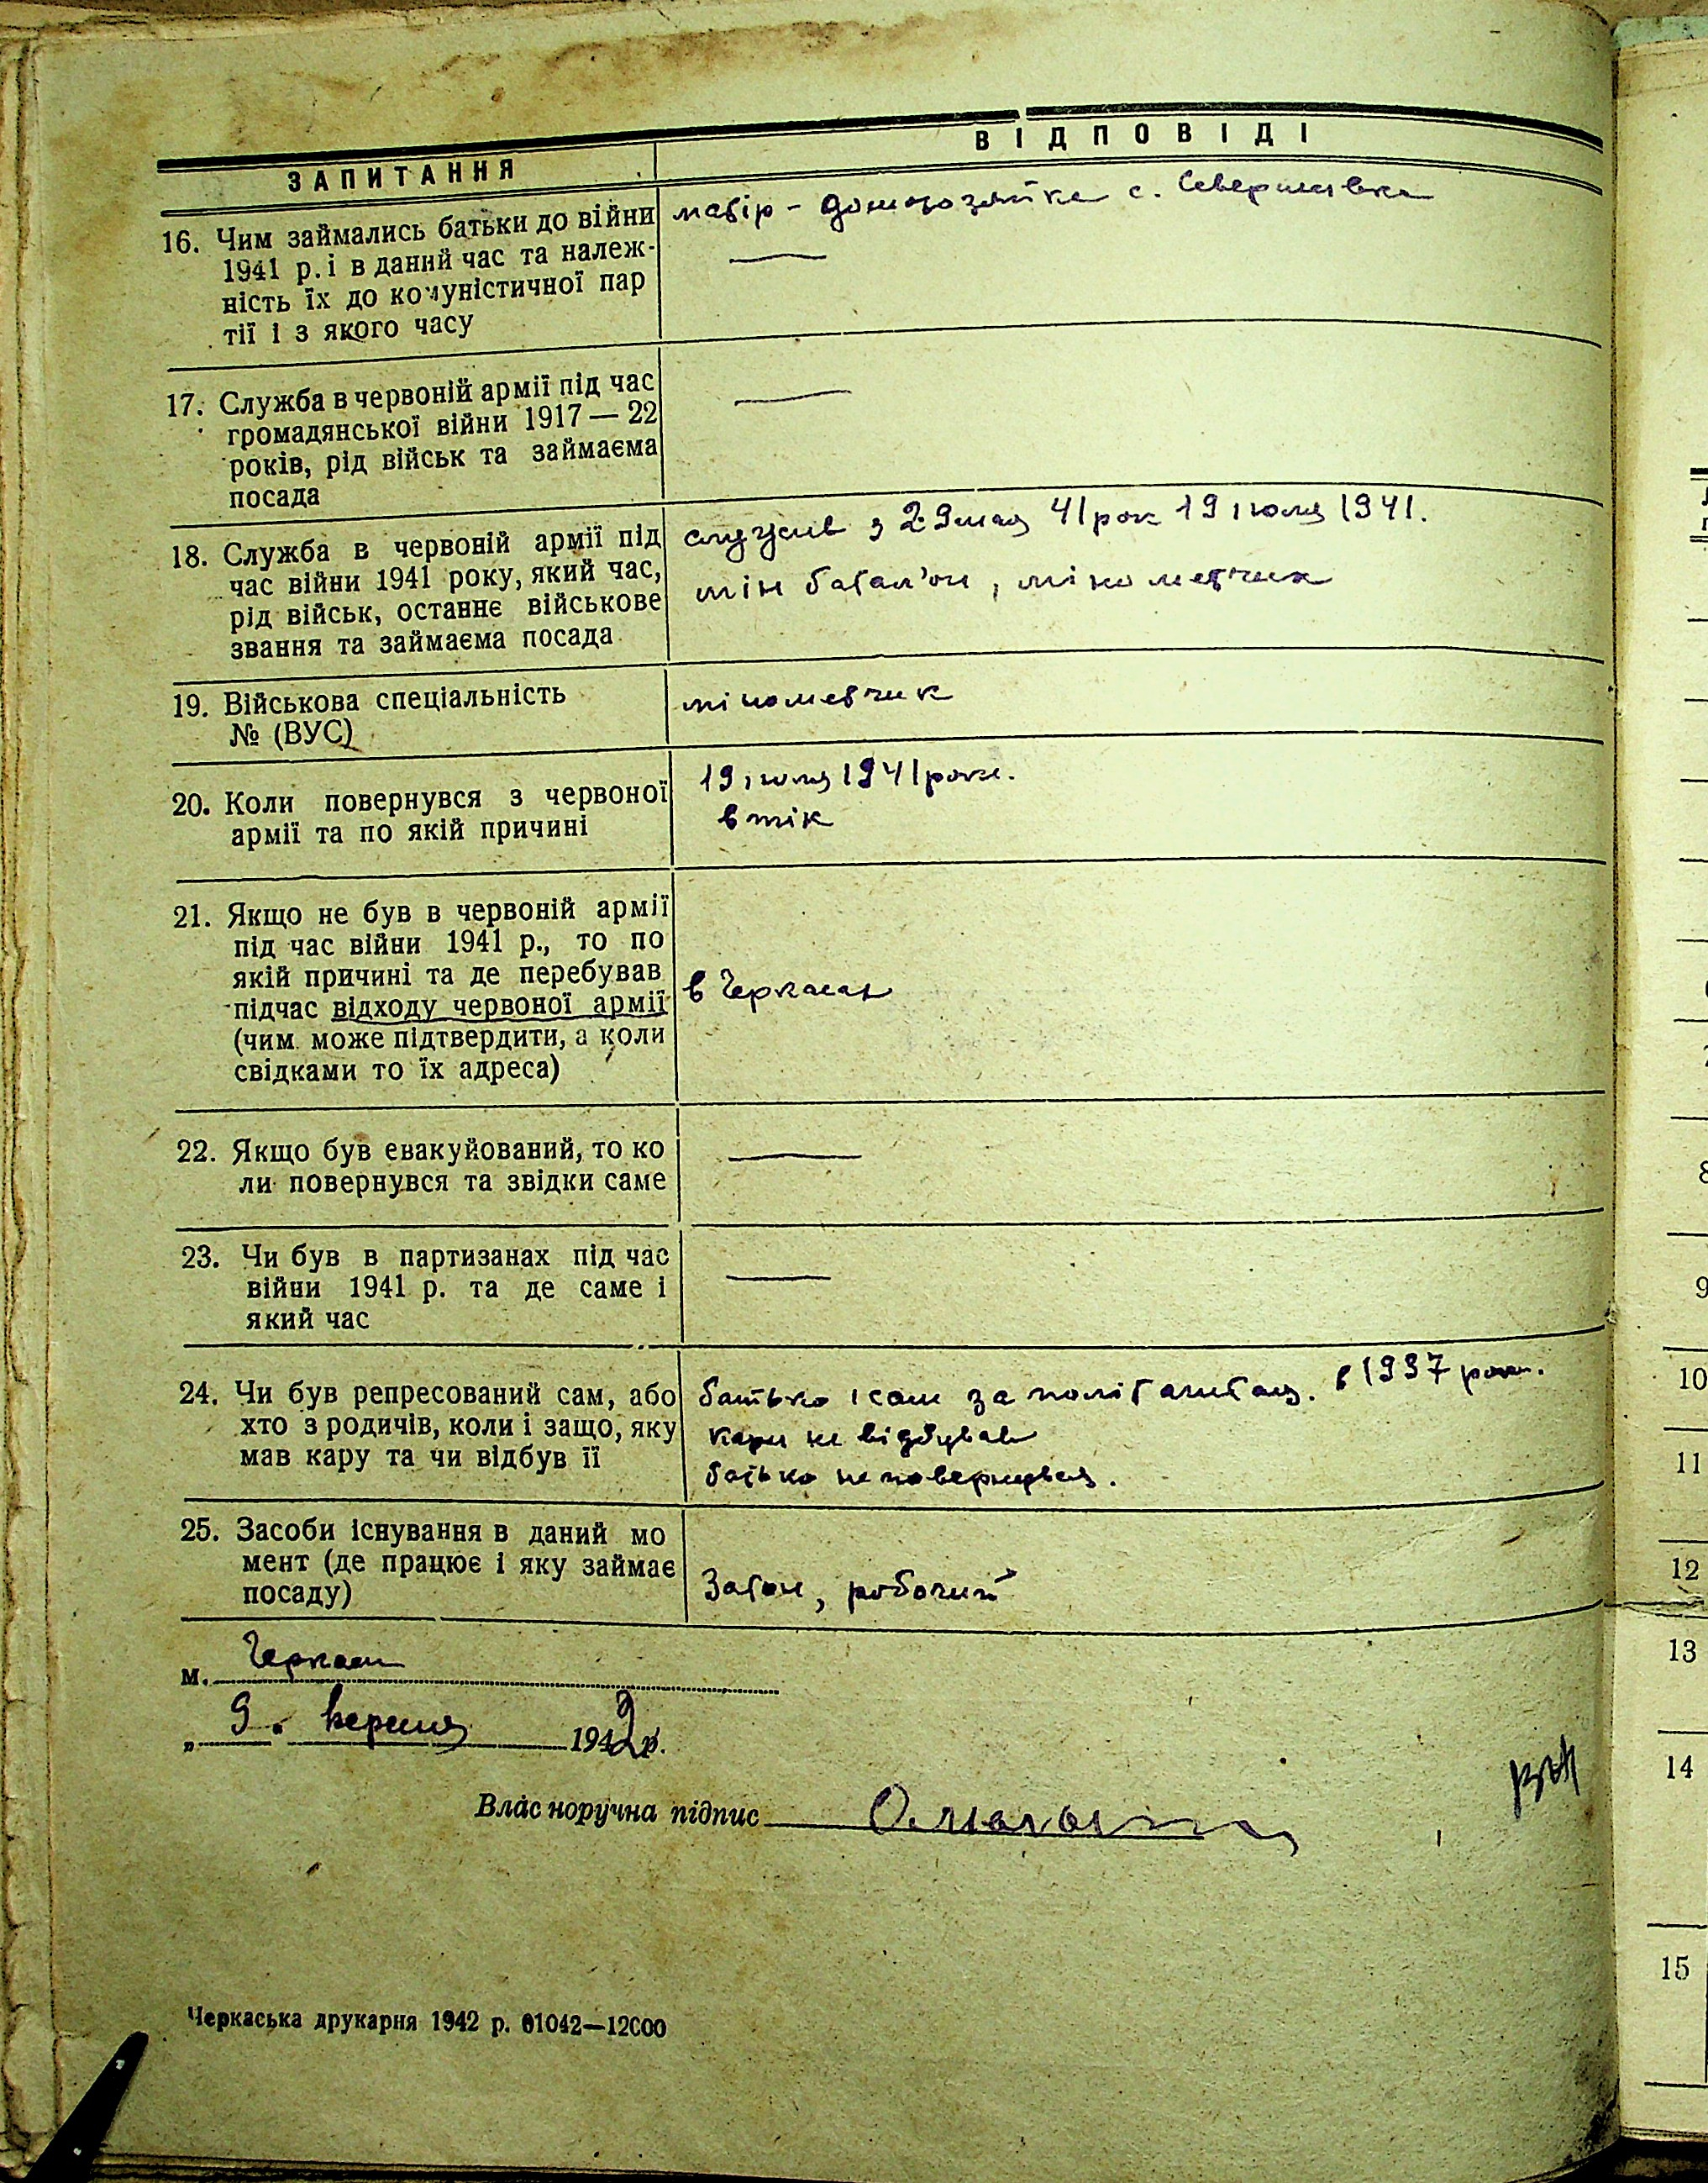 ЗАПИТАННЯ
ВІДПОВІДІ
16. Чим займались батьки до війни
1941 р. і в даний час та належ-
ність їх до комуністичної пар
тії і з якого часу
матір - домохозяйка с.
17. Служба в червоній армії під час
громадянської війни 1917 — 22
років, рід військ та займаєма
посада
18. Служба в червоній армії під
час війни 1941 року, який час,
рід військ, останнє військове
звання та займаєма посада
служив з 29 мая 41 рок 19 июля 1941.
мін батал'он, мінометчик
19. Військова спеціальність
№ (ВУС)
мінометчик
20. Коли повернувся з червоної
армії та по якій причині
19 июля 1941 року.
втік
21. Якщо не був в червоній армії
під час війни 1941 р., то по
якій причині та де перебував
підчас відходу червоної армії
(чим може підтвердити, а коли
свідками то їх адреса)
в Черкасах
22. Якщо був евакуйований, то ко
ли повернувся та звідки саме
23. Чи був в партизанах під час
війни 1941 р. та де саме і
який час
24. Чи був репресований сам, або
хто з родичів, коли і защо, яку
мав кару та чи відбув її
батько і сам за політ . в 1937 роки.
кари не відбував
батько не повернувся.
25. Засоби існування в даний мо
мент (де працює і яку займає
посаду)
Затон, робочий
м. Черкаси
„ 9. вересня 1942 р.
Власноручна підпис
Черкаська друкарня 1942 р. 01042—12000
8
9
10
11
12
13
14
15